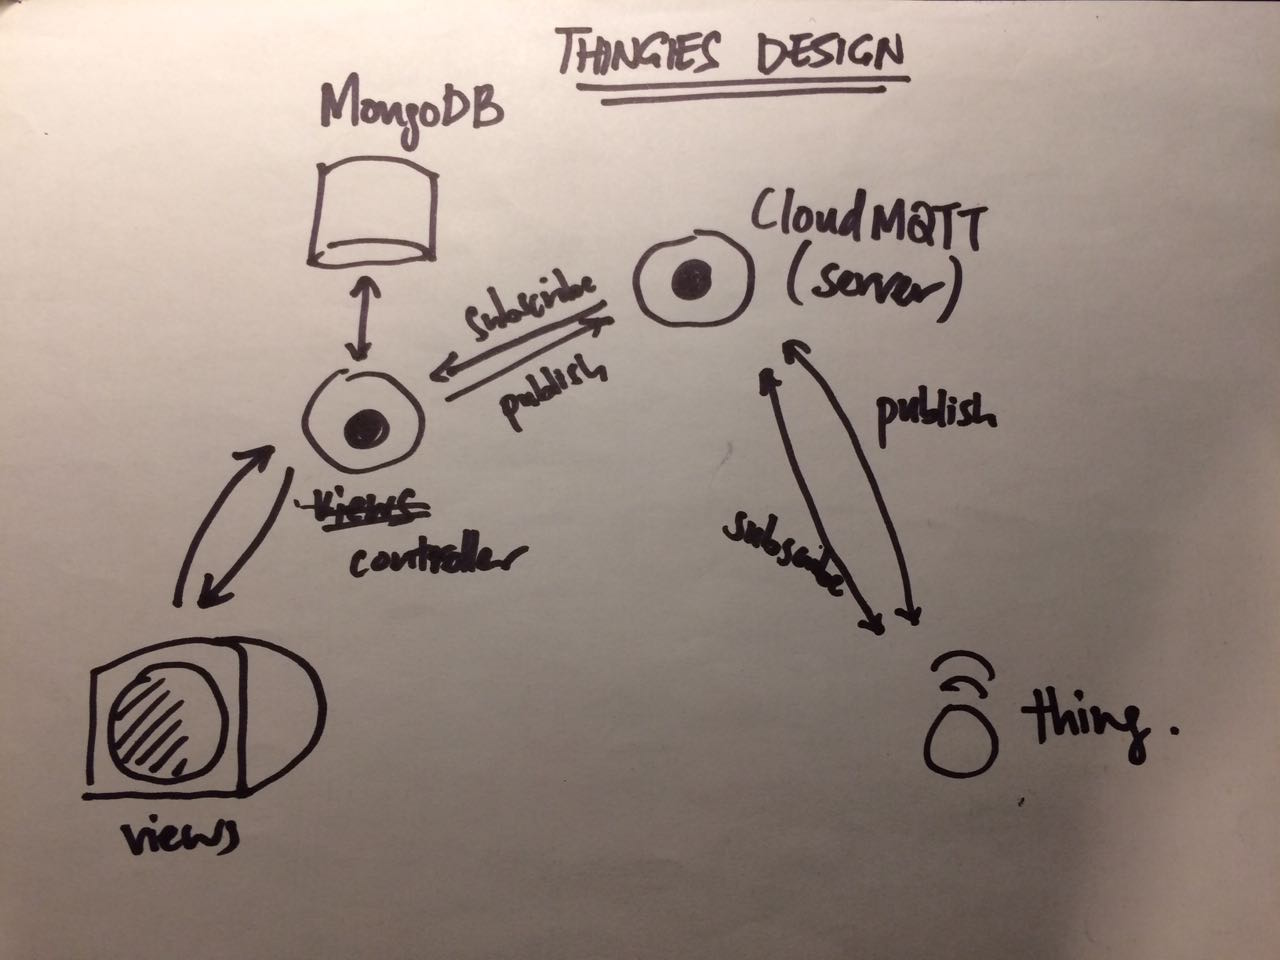 THINGIES DESIGN
MongoDB
CloudMQTT
(server)
subscribe
publish
publish
views
controller
subscribe
thing.
views